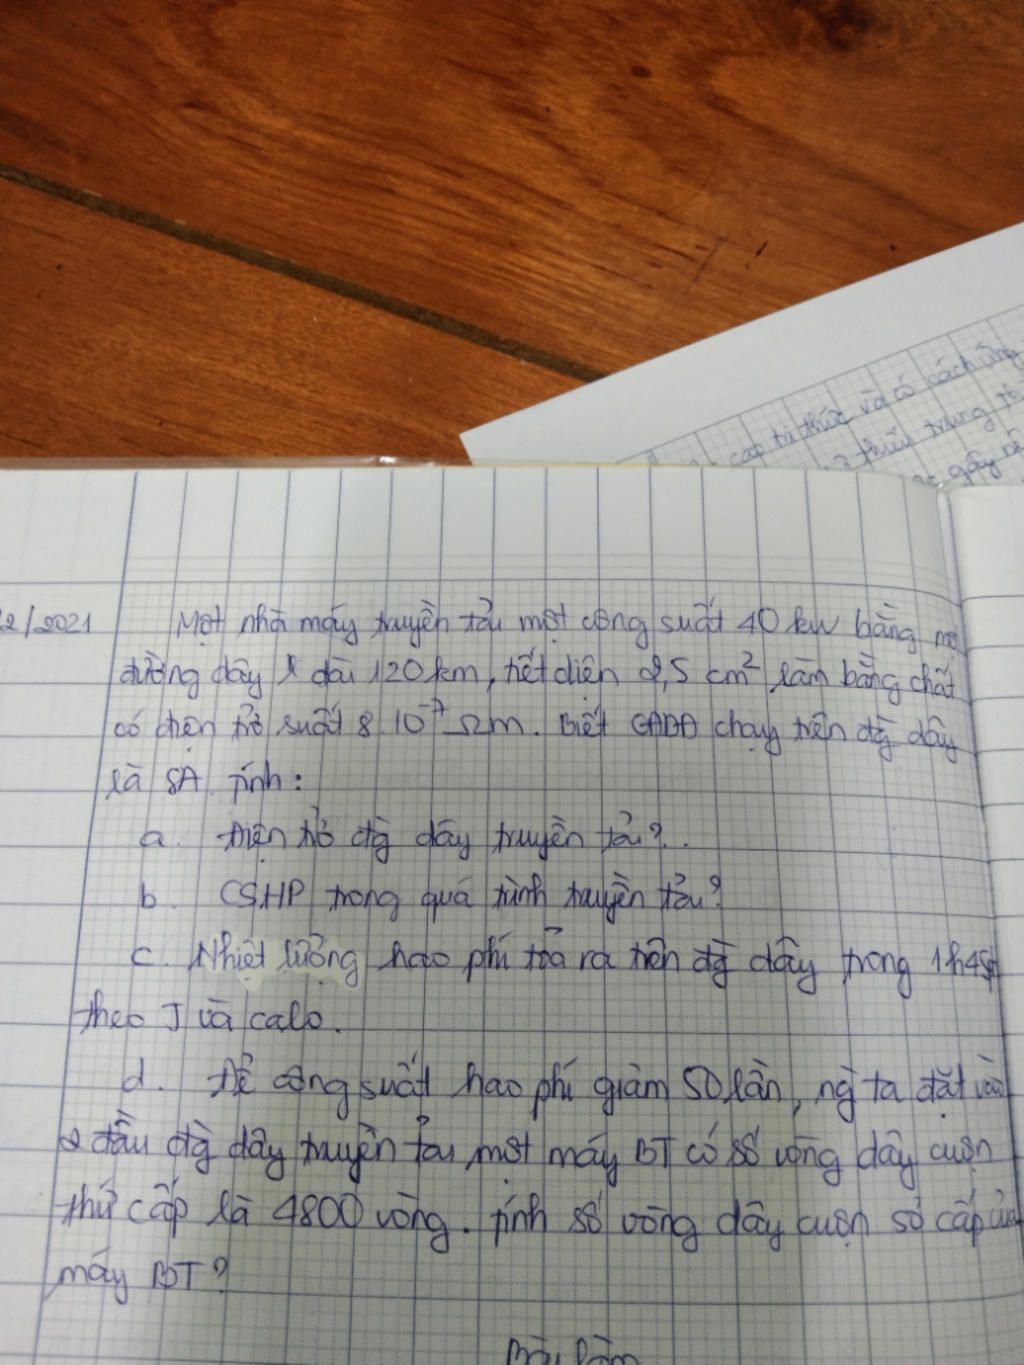 cao tri thức và có cách ứng
2/2021 Một nhà máy truyền tải một công suất 40 kw bằng một
đường dây l dài 120 km, tiết diện 2,5 cm² làm bằng chất
có điện trở suất 8.10⁻⁷ Ωm. Biết CĐDĐ chạy trên đg dây
là 8A. Tính:
a. Điện trở đg dây truyền tải?
b. CSHP trong quá trình truyền tải?
c. Nhiệt lượng hao phí tỏa ra trên đg dây trong 1h45p
theo J và calo.
d. Để công suất hao phí giảm 50 lần, ng ta đặt vào
2 đầu đg dây truyền tải một máy BT có số vòng dây cuộn
thứ cấp là 4800 vòng. Tính số vòng dây cuộn sơ cấp của
máy BT?
Bài làm